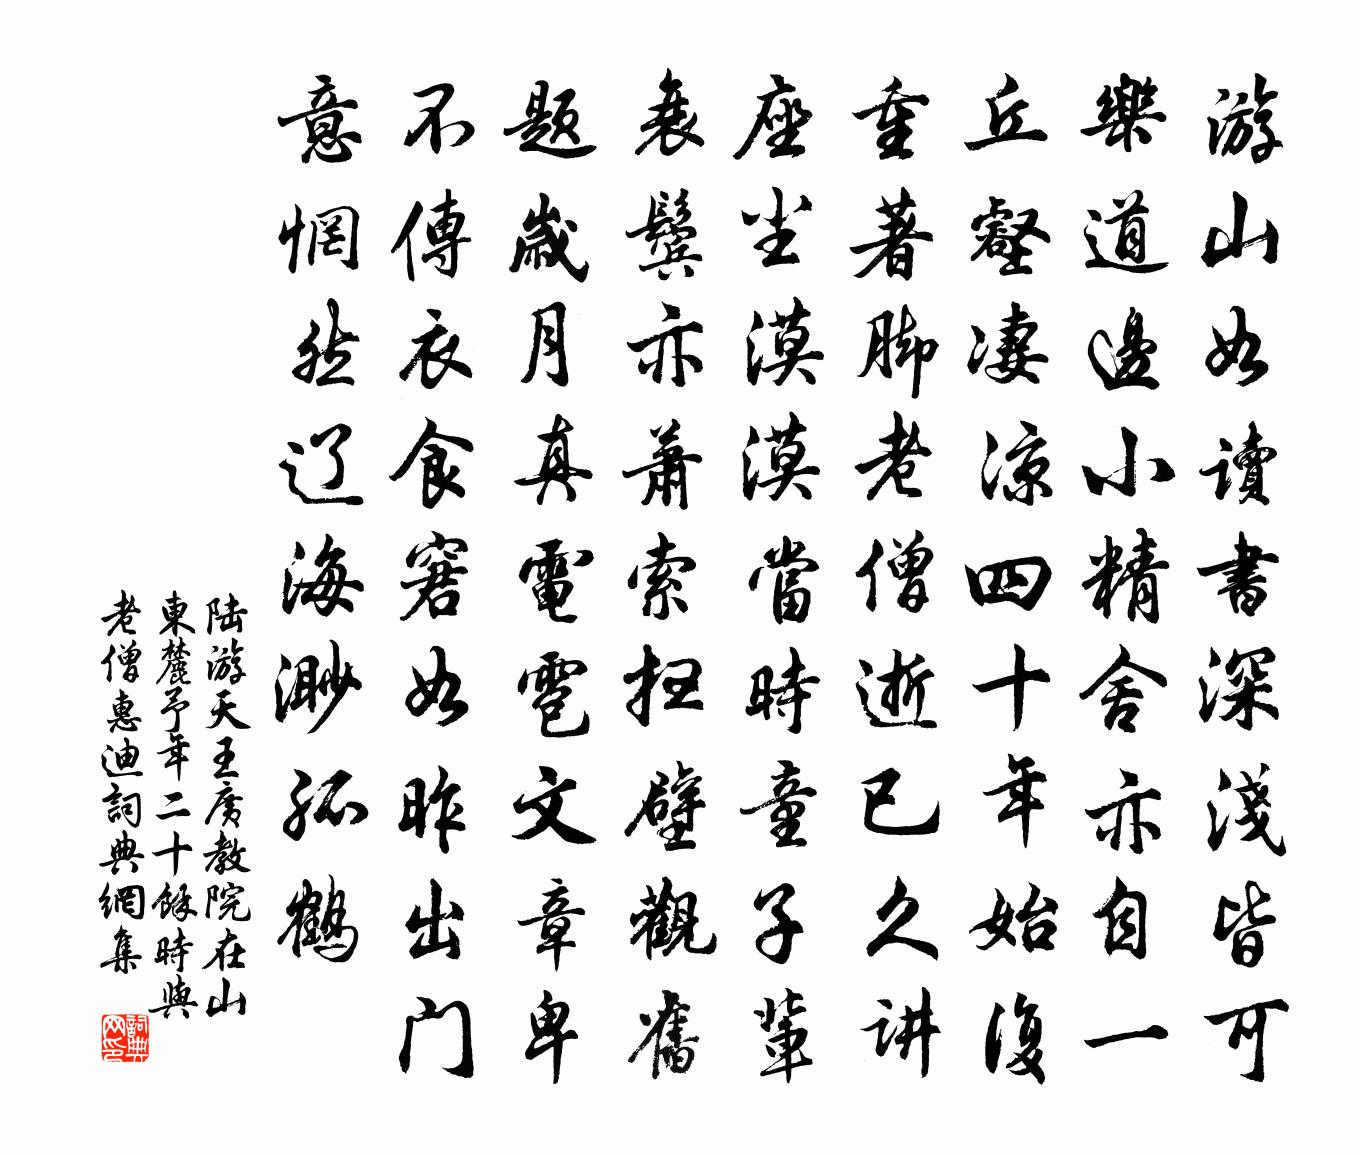 游山如讀書深淺皆可
樂道邊小精舍亦自一
丘壑淒涼四十年始復
重著脚老僧逝已久讲
座坐漠漠當時童子輩
衰鬢亦蕭索扫壁觀舊
題歲月真電雹文章卑
不傳衣食窘如昨出门
意惘然辽海渺孤鶴
陆游天王廣教院在山
東麓予年二十餘時與
老僧惠迪詞典網集
詞典
网印